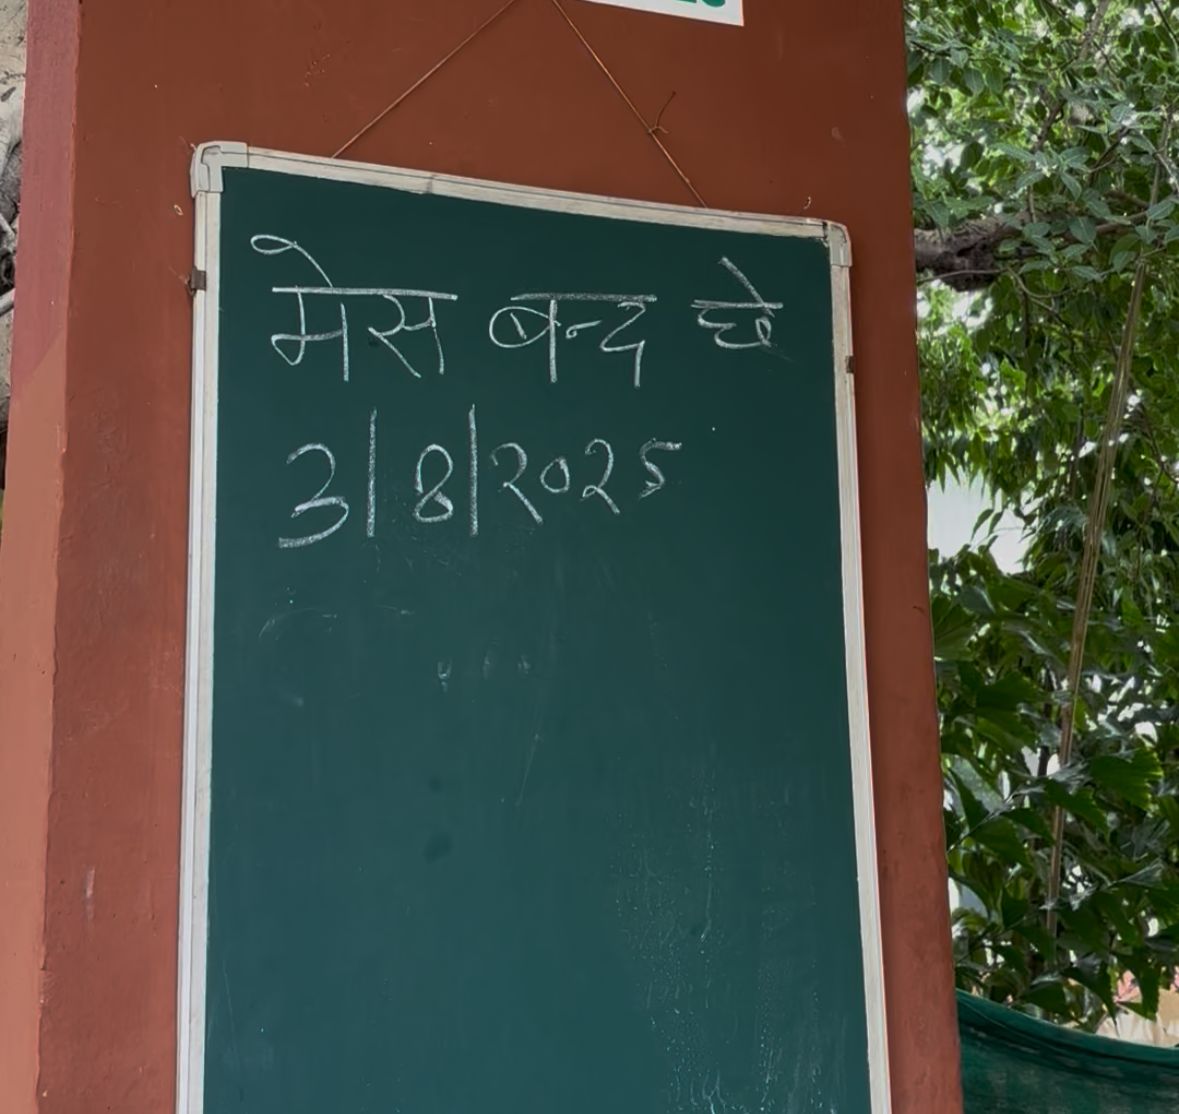 मेस बन्द छे
3/8/2025